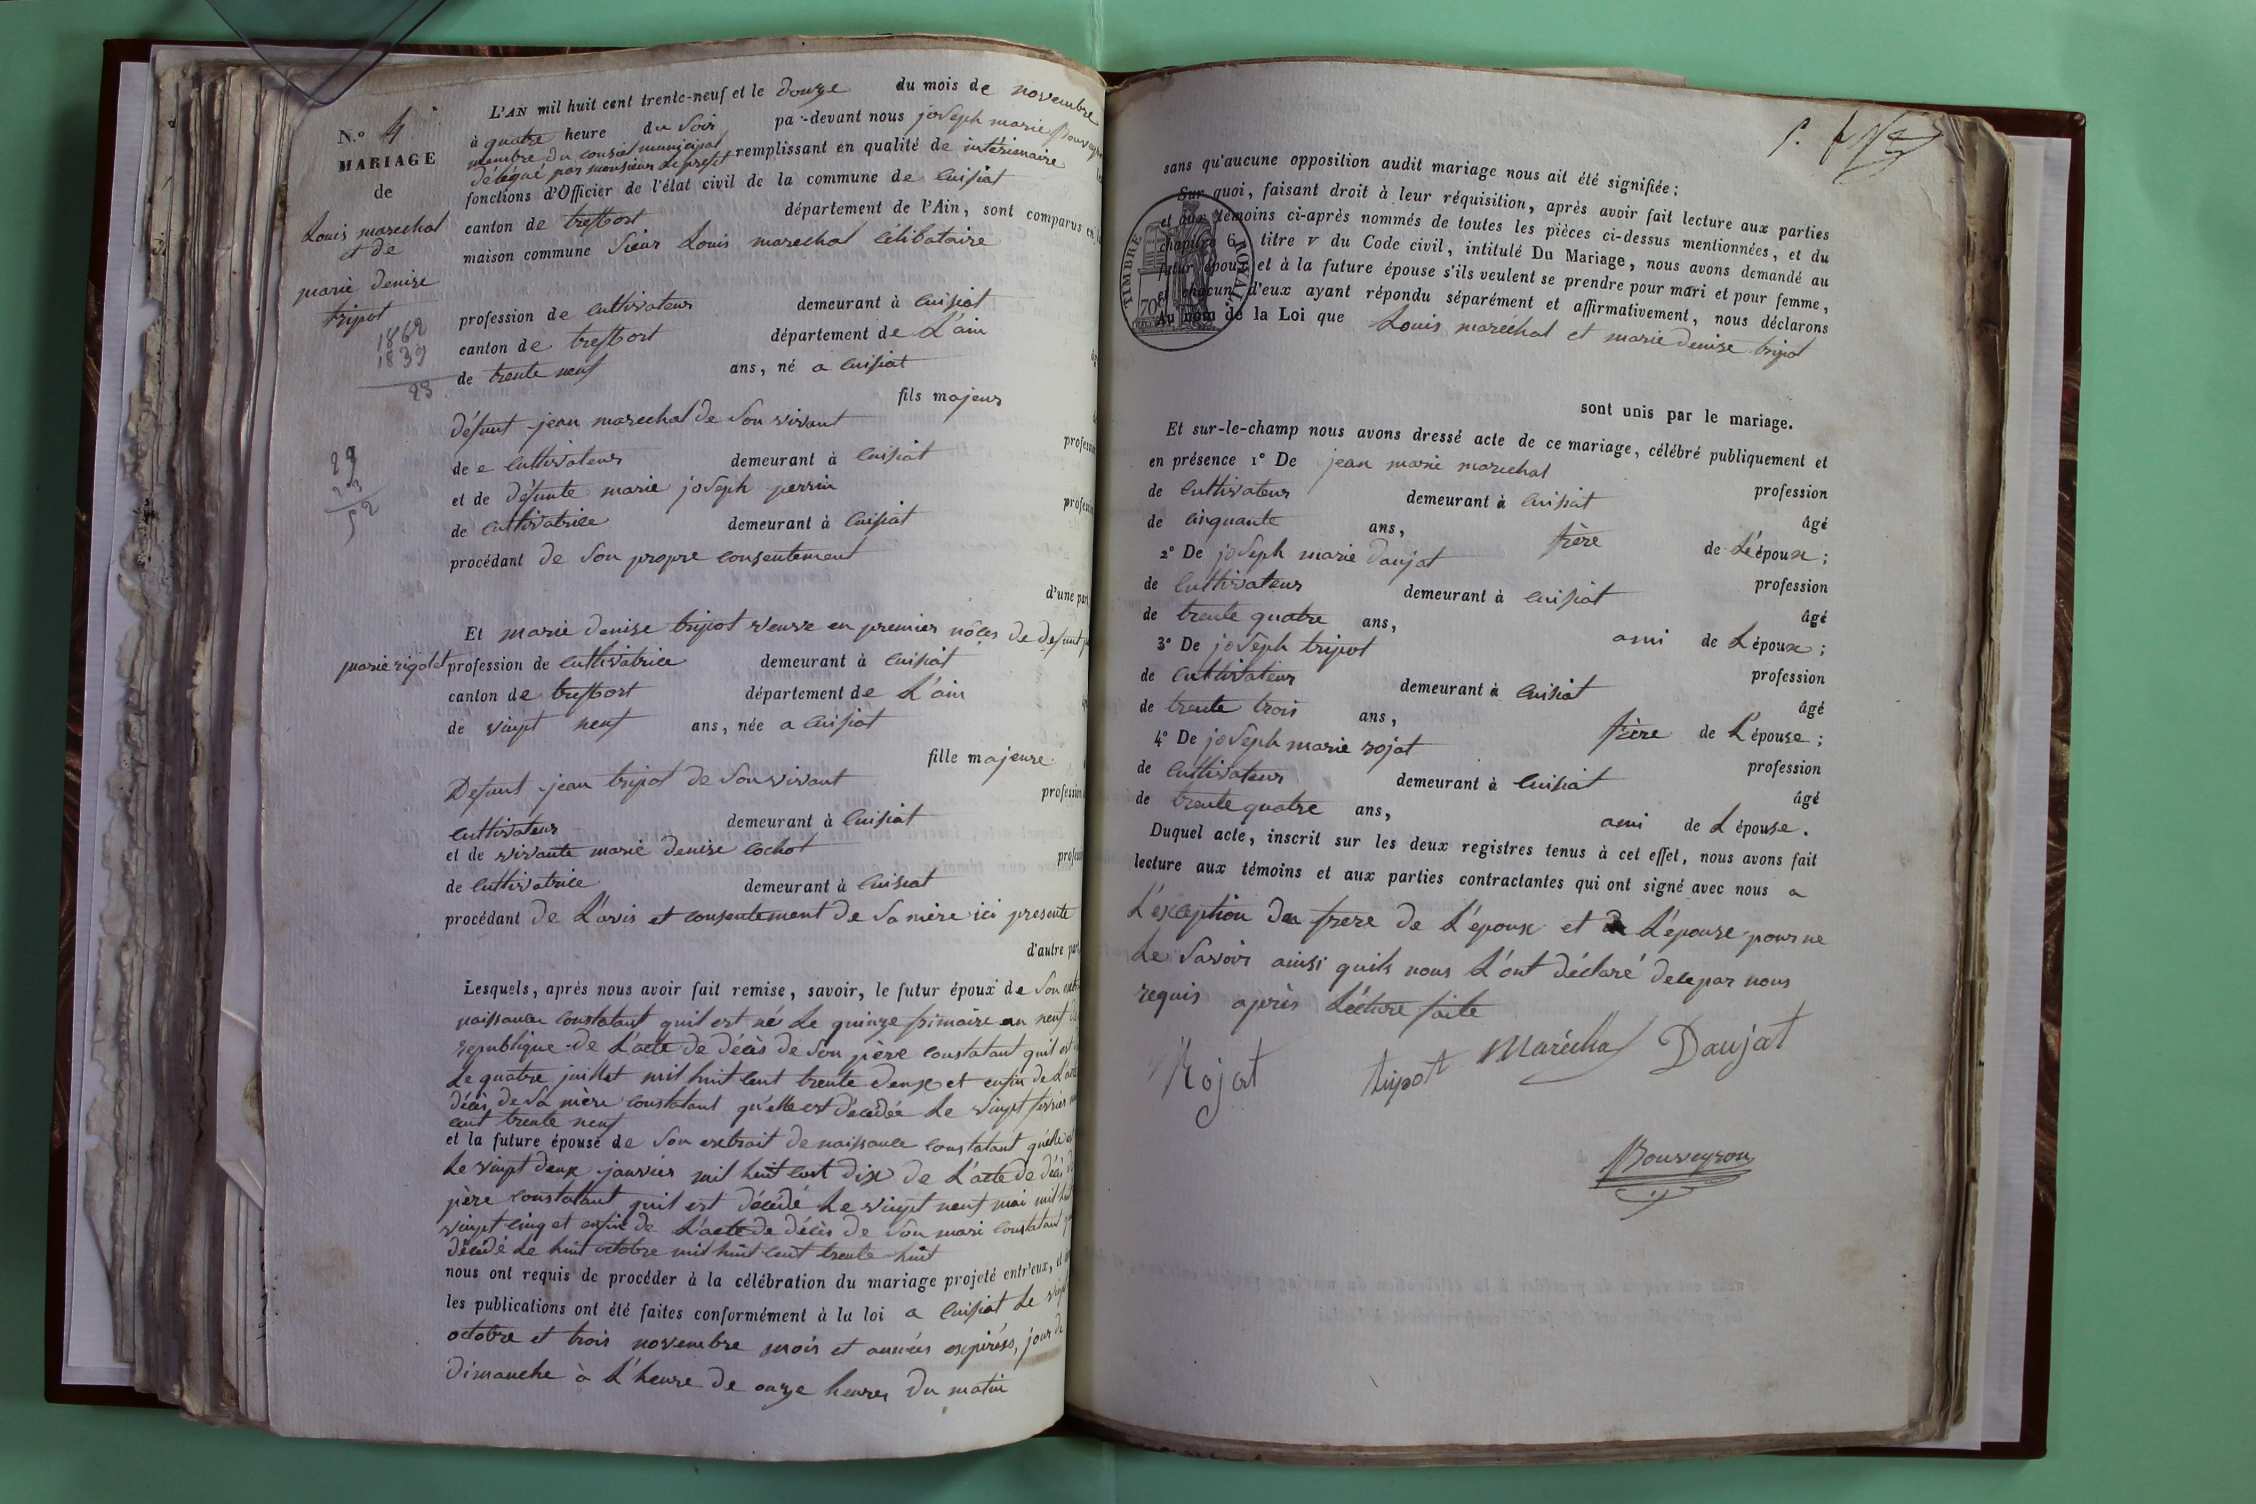 N.° 4
MARIAGE
de
Louis marechal
et de
marie denise
tripot
1862
1839
23
29
23
52
L'AN mil huit cent trente-neuf et le douze du mois de novembre
à quatre heure du soir par-devant nous joseph marie Bouveyron
membre du conseil municipal
délégué par monsieur le prefet remplissant en qualité de intérimaire
fonctions d'Officier de l'état civil de la commune de Cuisiat
canton de treffort département de l'Ain, sont comparus en
maison commune sieur Louis marechal célibataire
profession de cultivateur demeurant à Cuisiat
canton de treffort département de L'ain
de trente neuf ans, né a Cuisiat
fils majeur
défunt jean marechal de son vivant
de e cultivateur demeurant à Cuisiat
et de défunte marie joseph perrin
de cultivatrice demeurant à Cuisiat
procédant de son propre consentement
d'une part
Et marie denise tripot veuve en premier nôces de defunt
marie rigolet profession de cultivatrice demeurant à Cuisiat
canton de treffort département de L'ain
de vingt neuf ans, née a Cuisiat
fille majeure
Defunt jean tripot de son vivant
cultivateur demeurant à Cuisiat
et de vivante marie denise cochot
de cultivatrice demeurant à Cuisiat
procédant de L'avis et consentement de sa mère ici presente
d'autre part
Lesquels, après nous avoir fait remise, savoir, le futur époux de son
naissance constatant quil est né le quinze frimaire an neuf
republique de L'acte de décès de son père constatant quil est
le quatre juillet mil huit cent trente deux et enfin de L'acte
décès de sa mère constatant qu'elle est décédée le vingt fevrier
cent trente neuf
et la future épouse de son extrait de naissance constatant qu'elle est
le vingt deux janvier mil huit cent dix de L'acte de décès
père constatant quil est décédé le vingt neuf mai mil huit
vingt cinq et enfin de L'acte de décès de son mari constatant
décédé le huit octobre mil huit cent trente huit
nous ont requis de procéder à la célébration du mariage projeté entr'eux, et
les publications ont été faites conformément à la loi a Cuisiat le vingt
octobre et trois novembre mois et années expirés, jour de
dimanche à L'heure de onze heures du matin
sans qu'aucune opposition audit mariage nous ait été signifiée;
Sur quoi, faisant droit à leur réquisition, après avoir fait lecture aux parties
et aux témoins ci-après nommés de toutes les pièces ci-dessus mentionnées, et du
chapitre 6, titre v du Code civil, intitulé Du Mariage, nous avons demandé au
futur époux et à la future épouse s'ils veulent se prendre pour mari et pour femme,
et chacun d'eux ayant répondu séparément et affirmativement, nous déclarons
Au nom de la Loi que Louis maréchal et marie denise tripot
TIMBRE ROYAL
70
sont unis par le mariage.
Et sur-le-champ nous avons dressé acte de ce mariage, célébré publiquement et
en présence 1° De jean marie marechal
profession
de cultivateur demeurant à Cuisiat
âgé
de cinquante ans, frère de L'époux;
2° De joseph marie daujat
profession
de cultivateur demeurant à Cuisiat
âgé
de trente quatre ans, ami de L époux;
3° De joseph tripot
profession
de cultivateur demeurant à Cuisiat
âgé
de trente trois ans, frère de L'épouse;
4° De joseph marie rojat
profession
de cultivateur demeurant à Cuisiat
âgé
de trente quatre ans, ami de L épouse.
Duquel acte, inscrit sur les deux registres tenus à cet effet, nous avons fait
lecture aux témoins et aux parties contractantes qui ont signé avec nous a
L'exception du frere de L'époux et de L'épouse pour ne
le savoir ainsi quils nous L'ont déclaré de ce par nous
requis après Lécture faite
Rojat tripot Maréchal Daujat
Bouveyron